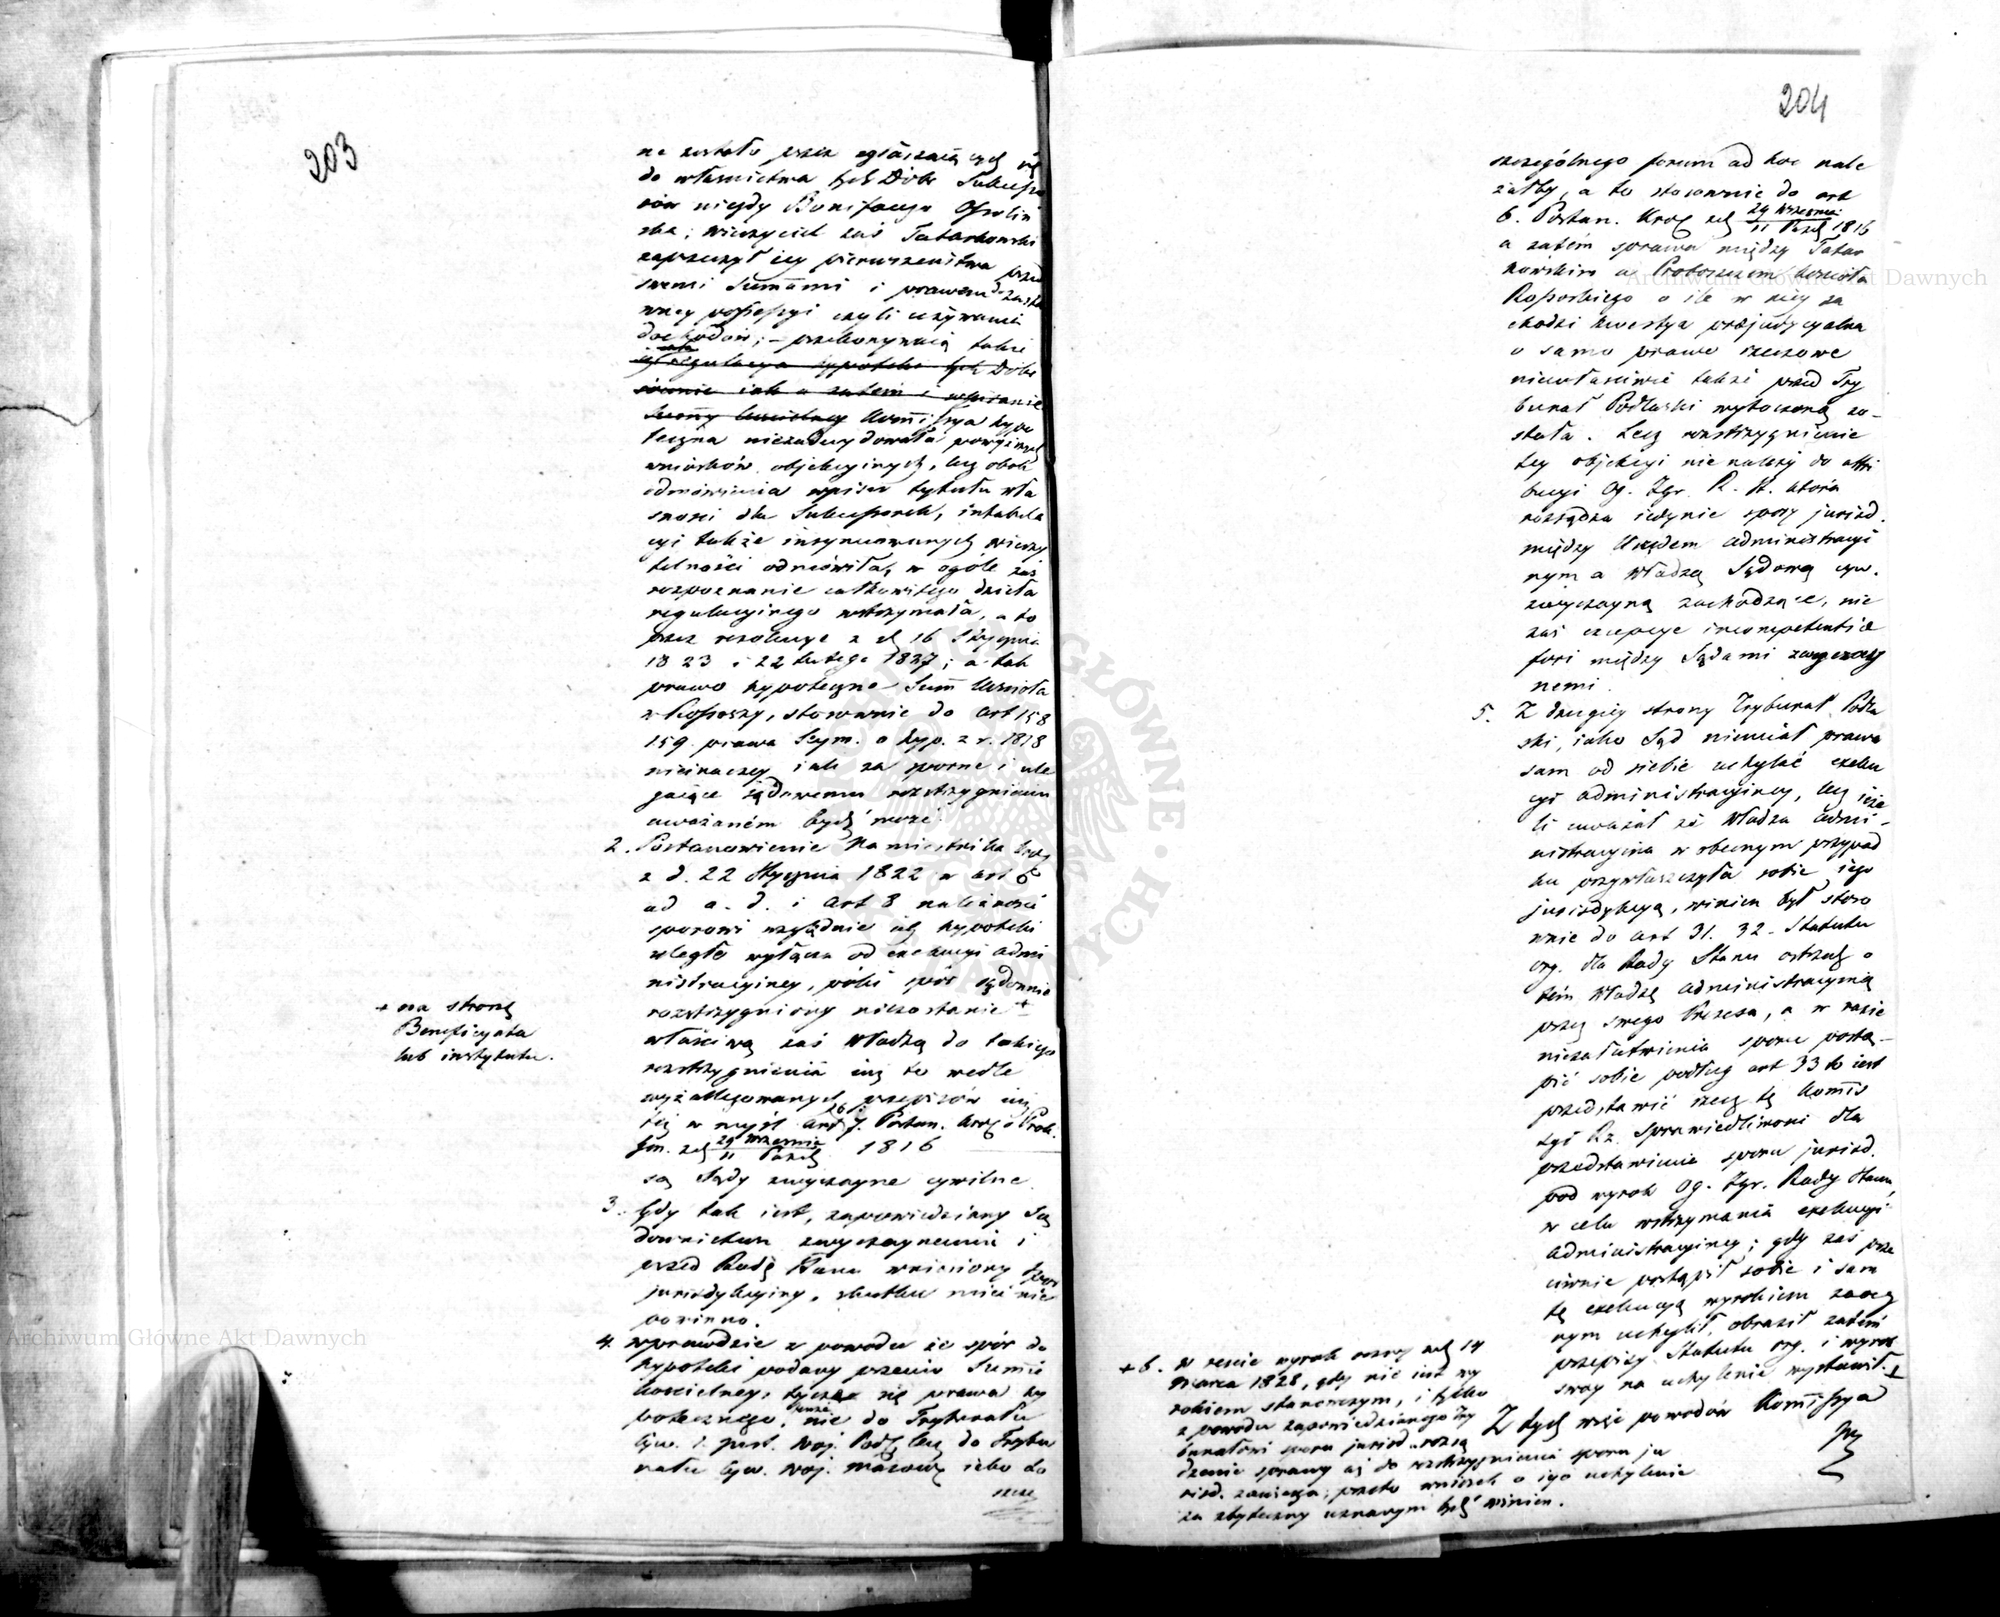 203
na zostało przez zgłaszaiących się
do własnictwa tych Dóbr Sukcesso
rów niegdy Bonifacego Ossoliń
ski; wierzyciel zaś Tatarkowski
zaprzeczył iey pierwszeństwa przed
swemi Summami i prawem do zasta
wney possessyi czyli używania
dochodów; – przekonywaią także
iż regulacya hypoteki tych Dóbr
równie iak a zatem i
Summy kościelney Kommissya hypo
teczna niezadecydowała powyższych
wniosków obiekcyinych, lecz obok
odmówienia wpisu tytułu wła
sności dla Sukcessorów, intabula
cyi także insynuowanych wierzy
telności odmówiła, w ogóle zaś
rozpoznanie całkowitego dzieła
regulacyinego wstrzymała, a to
przez rezolucye z d. 16 Stycznia
1823 i 22 Lutego 1827; a tak
prawo hypoteczne Summ Kościoła
w Kossoszy, stosownie do art 158
159 prawa Seym. o hyp. z r. 1818
nieinaczey iak za sporne i ule
gaiące sądowemu rozstrzygnieniu
uważanem bydź może.
2. Postanowienie Namiestnika Król
z d. 22 Stycznia 1822 w art 6
ad a. d. i art 8 należności
sporowi względnie ich hypoteki
uległe wyłącza od exekucyi admi
nistracyiney, póki spór sądownie
rozstrzygniony niezostanie +
+ na stronę
Beneficyata
lub instytutu.
właściwą zaś Władzą do takiego
rozstrzygnienia iuż to wedle
wyżallegowanych przepisów iuż
też w myśl art 7. Postan. Król
z d. 29 Września / 11 Paźdz 1816
są Sądy zwyczayne cywilne.
3. Gdy tak iest, zapowiedziany Są
downictwu zwyczaynemu i
przed Radę Stanu wniesiony spór
jurisdykcyiny, skutku mieć nie
powinno.
4. wprawdzie z powodu że spór do
hypoteki podany przeciw Summie
kościelney, tycząc się prawa hy
potecznego, nie do Trybunału
Cyw. I. Inst. Woj. Podl lecz do Trybu
nału Cyw. Woj. Mazow iako do
204
szczególnego forum ad hoc nale
żałby, a to stosownie do art
6. Postan. Król z d 29 Września / 11 Paźdz 1816
a zatem sprawa między Tatar
kowskim a Proboszczem Kościoła
Kossoskiego o ile w niey za
chodzi kwestya prejudycyalna
o samo prawo rzeczowe
niewłaściwie także przed Try
bunał Podlaski wytoczoną zo-
stała. Lecz rozstrzygnienie
tey obiekcyi nie należy do attri
bucyi Og. Zgr. R. St. która
rozsądza iedynie spory jurisd.
między Urzędem administracyi
nym a Władzą Sądową cyw.
zwyczayną zachodzące, nie
zaś excepcye incompetentiae
fori między Sądami zwyczay
nemi.
5. Z drugiey strony Trybunał Podla
ski, iako Sąd niemiał prawa
sam od siebie uchylać exeku
cyi administracyiney, lecz ieże
li uważał że Władza admi-
nistracyina w obecnym przypad
ku przywłaszczyła sobie iego
jurisdykcyą, winien był stoso
wnie do art 31. 32 – Statutu
org. dla Rady Stanu ostrzedz o
tem Władzę administracyiną
przez swego Prezesa, a w razie
niezałatwienia sporu postą-
pić sobie podług art 33 to iest
przedstawić rzecz tę Kommis
syi Rz. Sprawiedliwości dla
przedstawienia sporu jurisd.
pod wyrok Og. Zgr. Rady Stanu,
w celu wstrzymania exekucyi
administracyiney; gdy zaś prze
ciwnie postąpił sobie i sam
tę exekucyą wyrokiem zaocz
nym uchylił, obraził zatem
przepisy Statutu org. i wyrok
swoy na uchylenie wystawił. +
+ 6. w reszcie wyrok oczny z d 14
Marca 1828, gdy nie iest wy
rokiem stanowczym, i tylko
z powodu zapowiedzianego Try
bunałowi sporu jurisd. rozsą
dzenie sprawy aż do rozstrzygnienia sporu ju
risd. zawiesza; przeto wniosek o iego uchylenie
za zbyteczny uznanym bydź winien.
Z tych więc powodów Kommissya
Archiwum Główne Akt Dawnych
Archiwum Główne Akt Dawnych